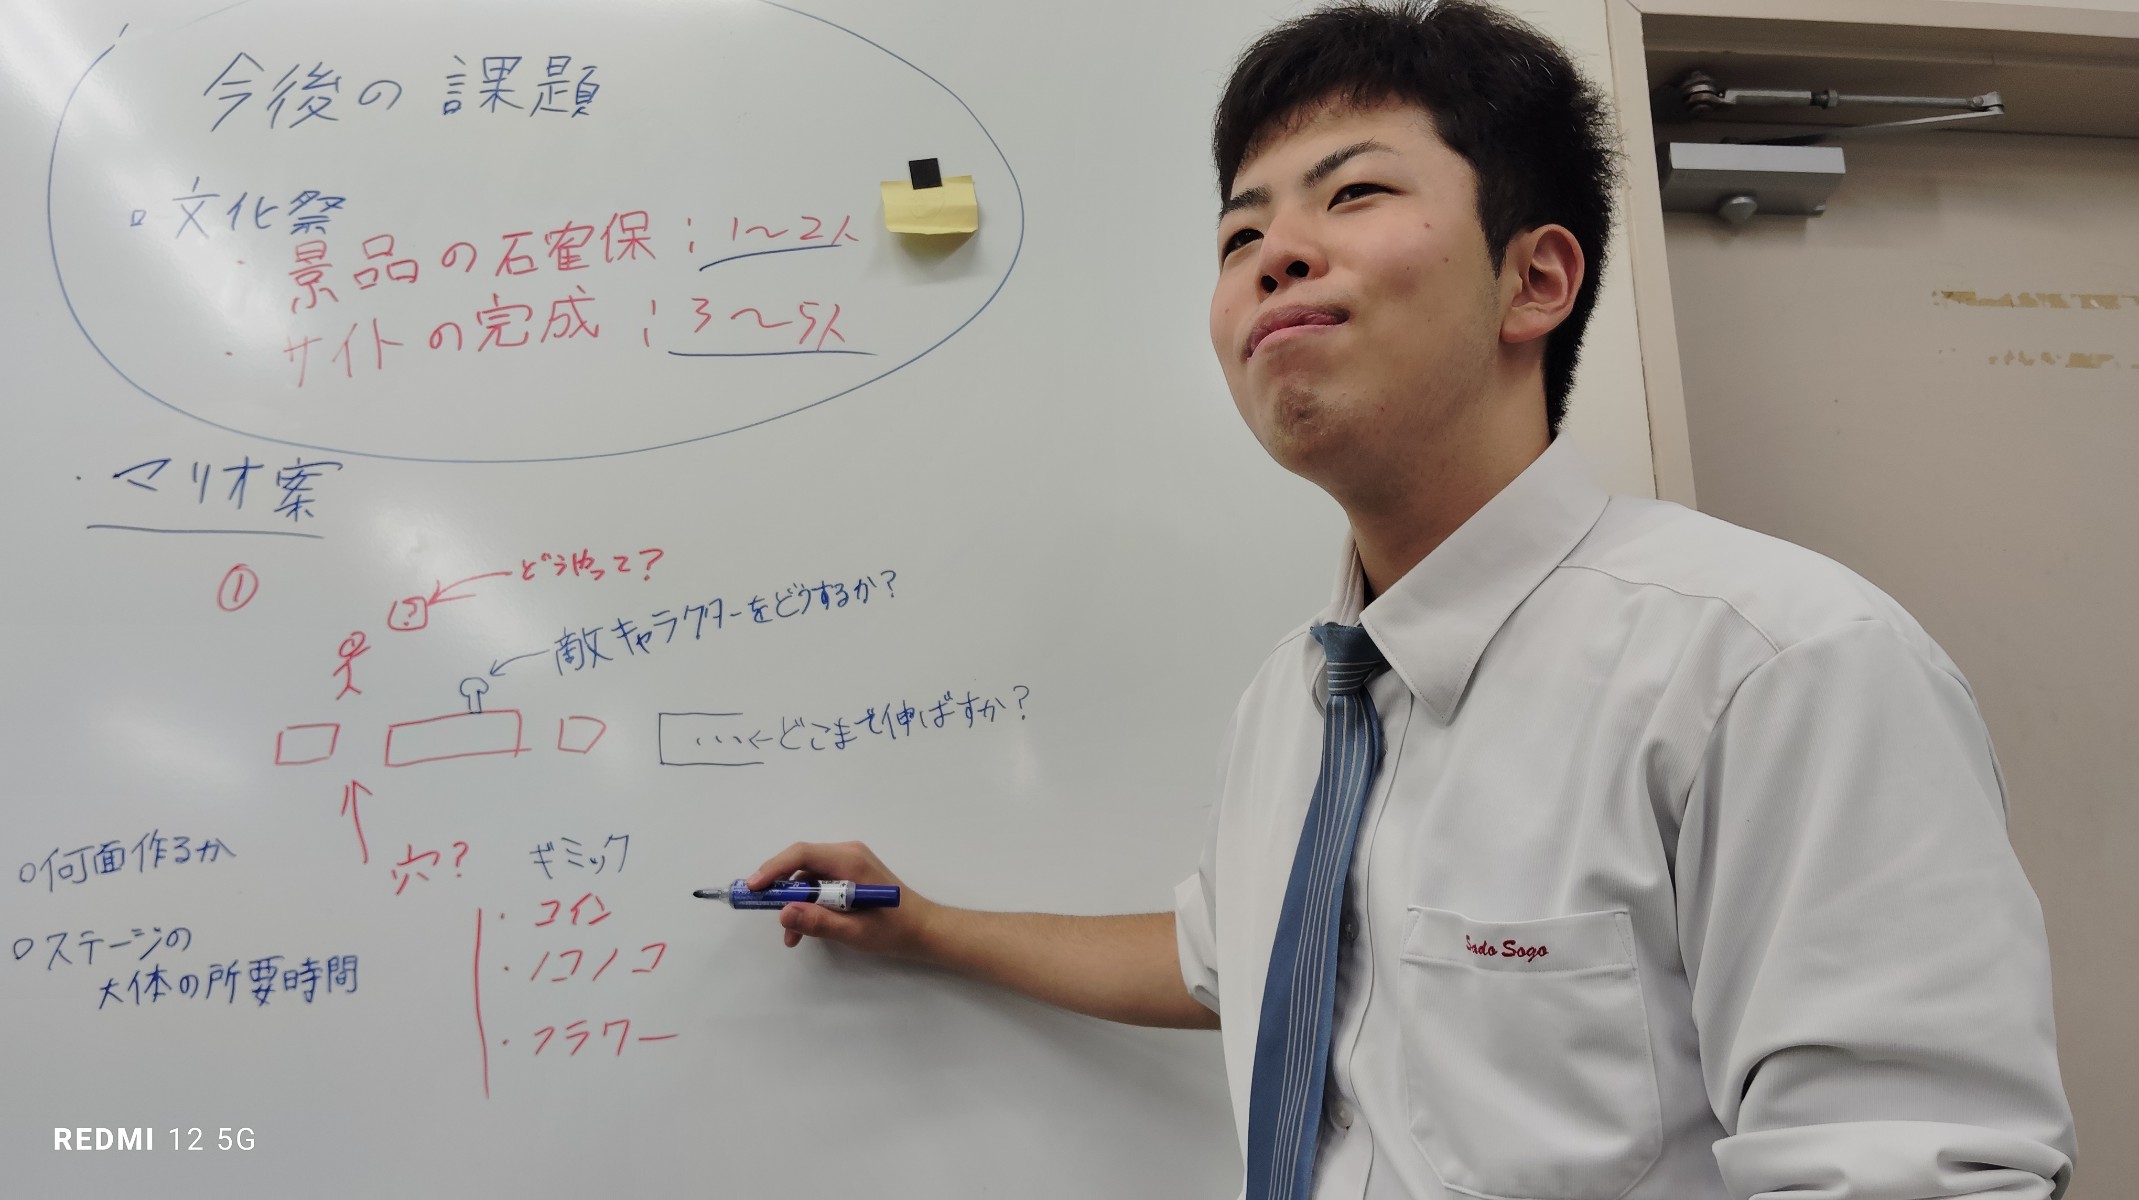 今後の課題
文化祭
・景品の確保：1～2人
・サイトの完成：3～5人
・マリオ案
①
?
どうやって？
敵キャラクターをどうするか？
...←どこまで伸ばすか？
穴？
○何面作るか
○ステージの
大体の所要時間
ギミック
・コイン
・ノコノコ
・フラワー
Sado Sogo
REDMI 12 5G